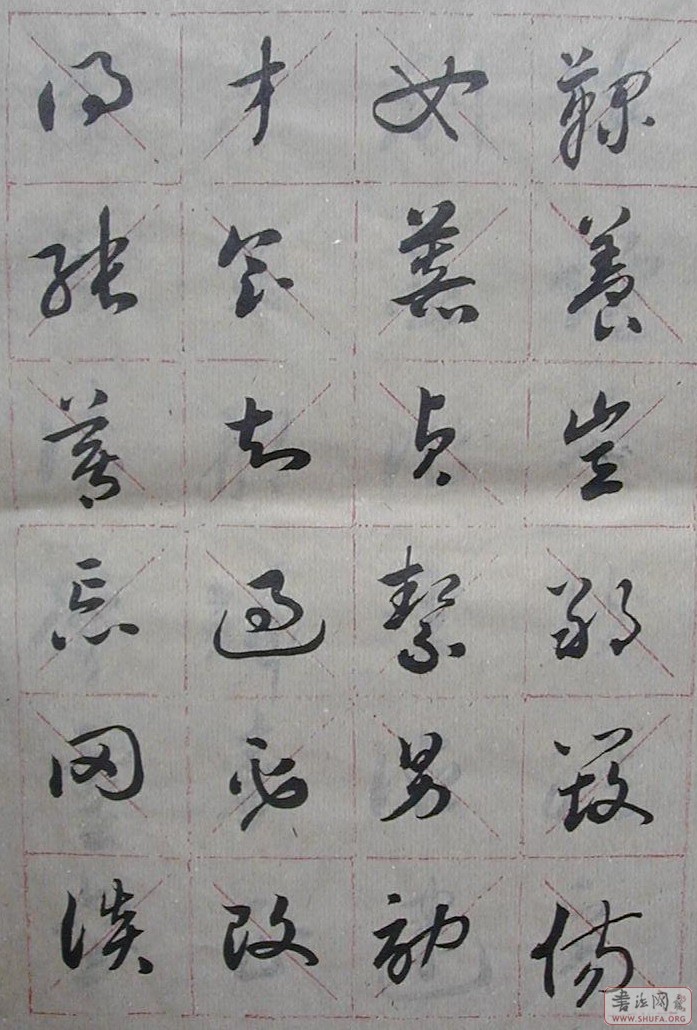 鞠養豈敢毀傷
女慕貞絜男効
才良知過必改
得能莫忘罔談
書法网
WWW.SHUFA.ORG